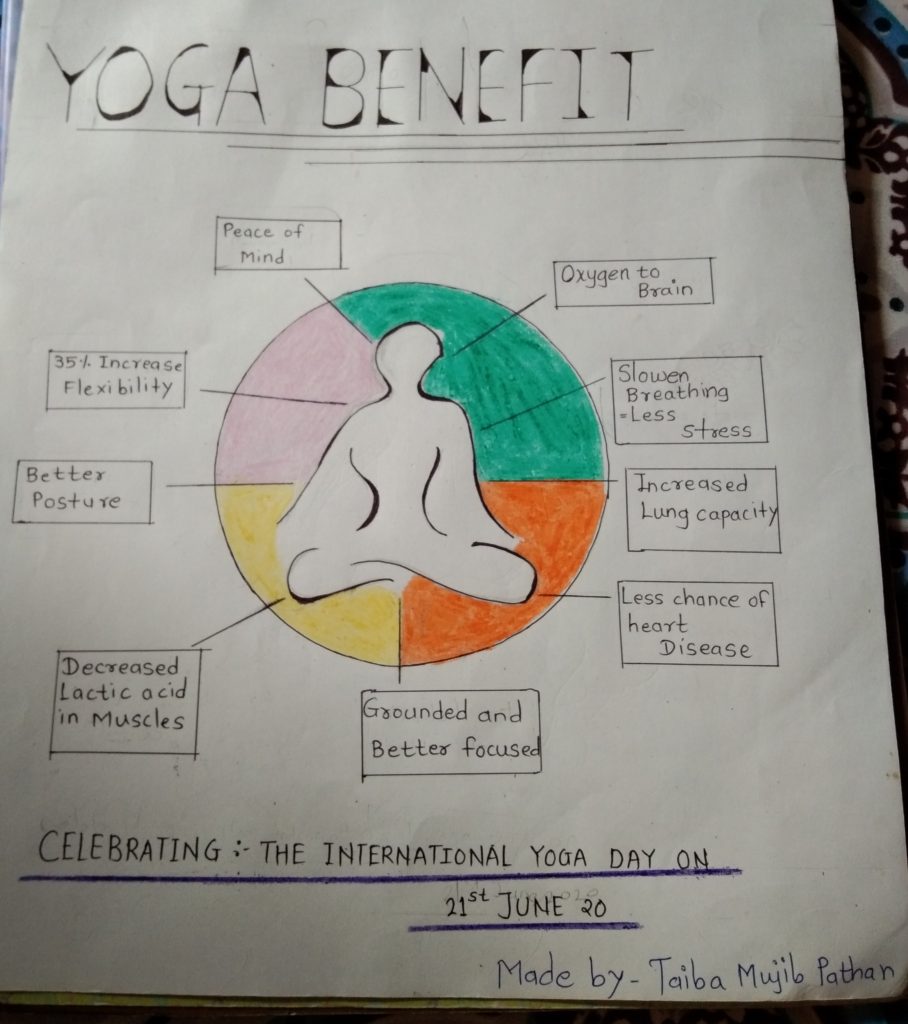 YOGA BENEFIT
Peace of
Mind
Oxygen to
Brain
35% Increase
Flexibility
Slowen
Breathing
=Less
Stress
Better
Posture
Increased
Lung capacity
Less chance of
heart
Disease
Decreased
Lactic acid
in Muscles
Grounded and
Better focused
CELEBRATING :- THE INTERNATIONAL YOGA DAY ON
21st JUNE 20
Made by - Taiba Mujib Pathan